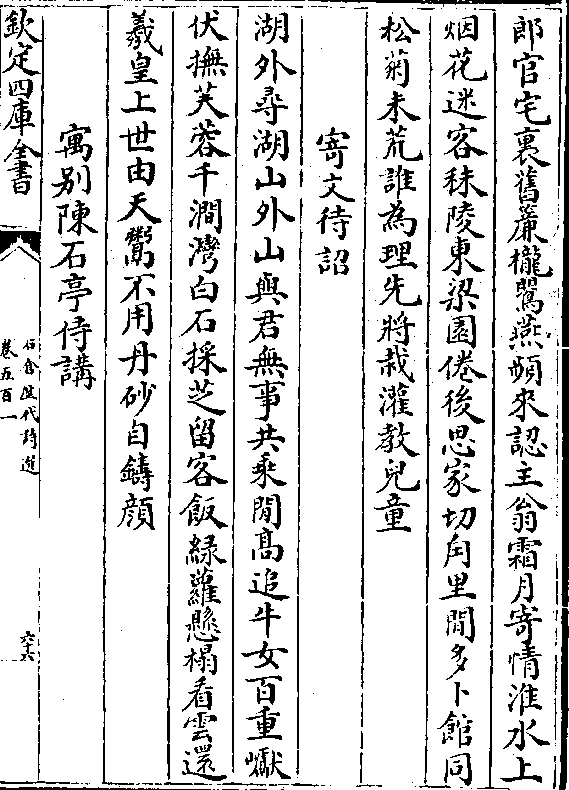 郎官宅裏舊簾櫳鶯燕頻來認主翁霜月寄情淮水上
烟花迷客秣陵東梁園倦後思家切甪里閒多卜館同
松菊未荒誰為理先將栽灌教兒童
寄文待詔
湖外尋湖山外山與君無事共乘閒髙追牛女百重巘
伏撫芙蓉千澗灣白石採芝留客飯緑蘿懸榻看雲還
羲皇上世由天鬻不用丹砂自鑄顔
寓别陳石亭侍講
欽定四庫全書
石倉歴代詩選
卷五百一
六十六